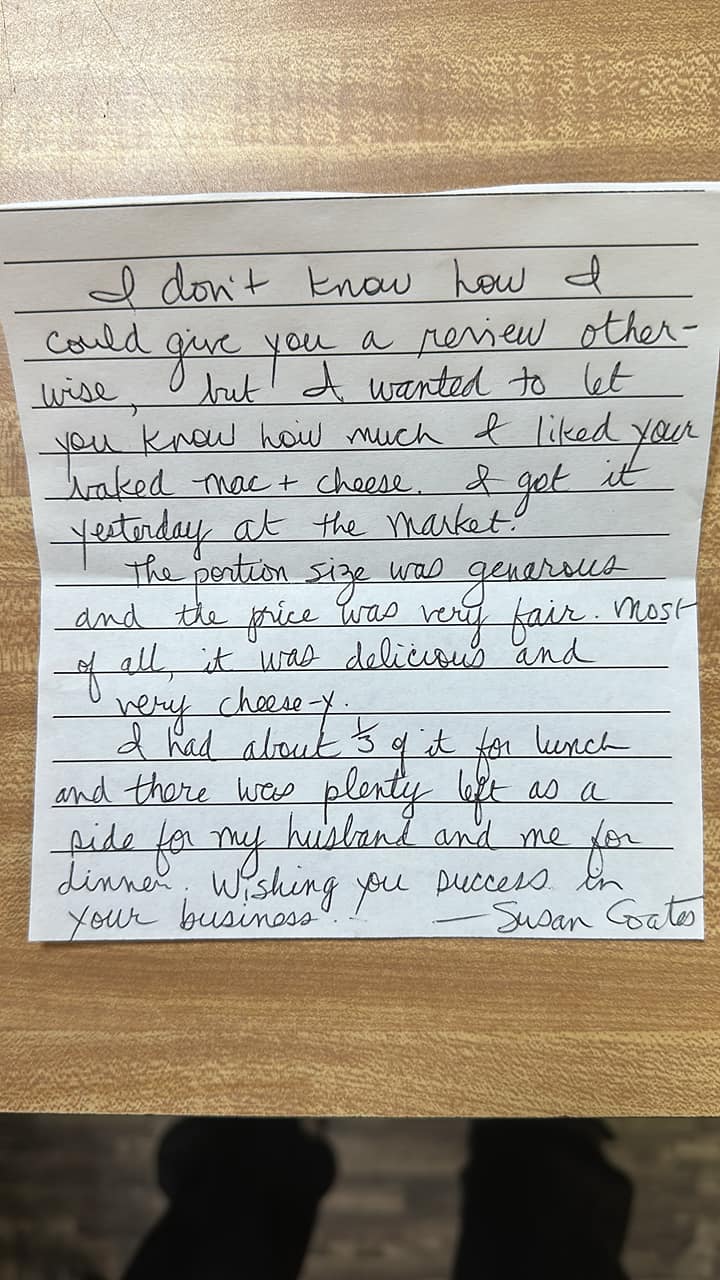 I don't know how I
could give you a review other-
wise, but I wanted to let
you know how much I liked your
baked mac + cheese. I got it
yesterday at the market.
The portion size was genarous
and the price was very fair. Most
of all, it was delicious and
very cheese-y.
I had about 1/3 of it for lunch
and there was plenty left as a
side for my husband and me for
dinner. Wishing you success in
your business.
— Susan Coates